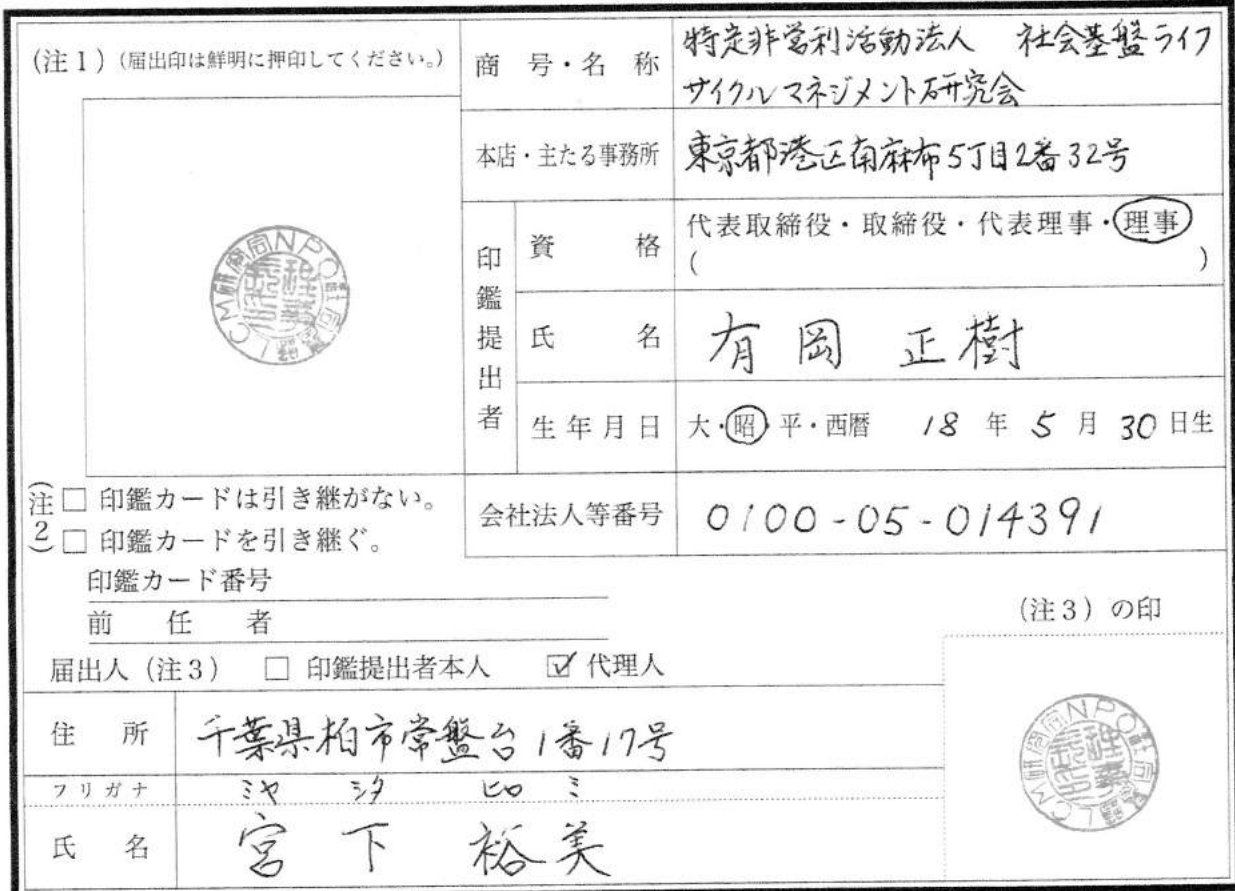 (注1)(届出印は鮮明に押印してください。)
商号・名称
特定非営利活動法人 社会基盤ライフ
サイクルマネジメント研究会
本店・主たる事務所
東京都港区南麻布5丁目2番32号
印鑑提出者
資格
代表取締役・取締役・代表理事・理事
( )
氏名
有岡 正樹
生年月日
大・昭・平・西暦 18年5月30日生
(注2)
□ 印鑑カードは引き継がない。
□ 印鑑カードを引き継ぐ。
会社法人等番号
0100-05-014391
印鑑カード番号
前任者
(注3)の印
届出人(注3) □ 印鑑提出者本人 ☑ 代理人
住所
千葉県柏市常盤台1番17号
フリガナ
ミヤ シタ ヒロ ミ
氏名
宮下 裕美
NPO
LCM